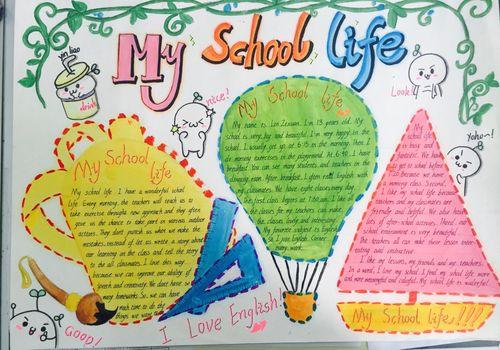 My School Life
yin liao
drink
nice!
Look!
Yaho~!
My School life
My school life. I have a wonderful school
life. Every morning, the teachers will teach us to
take exercise through new approach and they often
give us the chance to take part in various outdoor
actives. They don't punish us when we make the
mistakes, instead of let us write a story about
our learning in the class and tell the story
to the all classmates. I love this way,
because we can improve our ability of
speech and creativity. We don't have so
many homeworks. So, we can have
much time to do the
things we want
My School life
My name is
I'm 13 years old. My
school is very big and beautiful. I'm very happy in the
school. I usually get up at 6:15 in the morning. Then I
do morning exercises in the playground. At 6:40, I have
breakfast. You can see many students and teachers in the
dinning room. After breakfast, I often read English with
my classmates. We have eight classes every day.
The first class begins at 7:50 am. I like all
the classes, for my teachers can make
the classes lively and interesting.
My favorite subject is English.
So I join English Corner
every week.
My school life
is busy and
fantastic. We have
to get to school before
7:20 because we have
a morning class
I like my school life because
teachers and my classmates are
friendly and helpful. We also have
lots of after-school activity. Moral and
school environment is very beautiful.
The teachers all can make their lesson inter-
esting and instructive
I like my lessons, my friends and my teachers.
In a word, I love my school. I find my school life more
and more meaningful and colorful. My school life is wonderful.
Goop!
I Love English!
My School life!!!